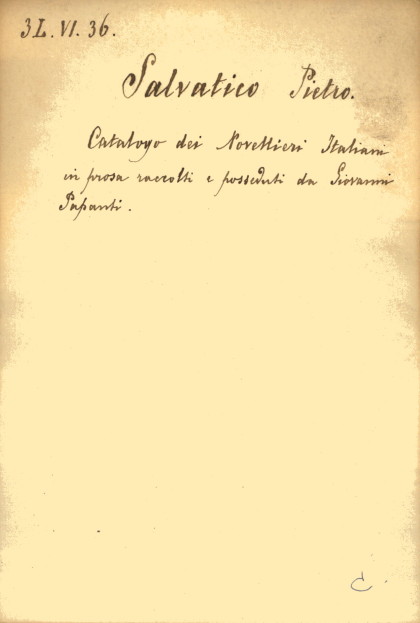 3L.VI.36.
Salvatico Pietro.
Catalogo dei Novellieri Italiani
in prosa raccolti e posseduti da Giovanni
Papanti.
C